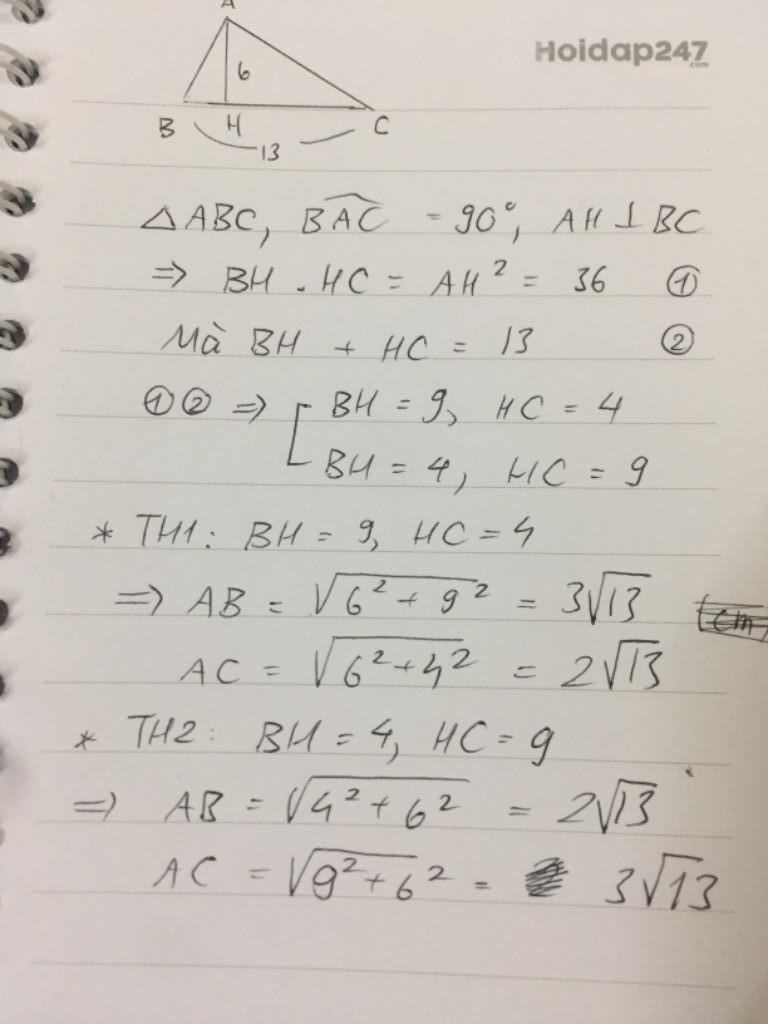 A
Hoidap247
.com
6
B H C
13
△ABC, BAC = 90°, AH ⊥ BC
=> BH . HC = AH² = 36 ①
Mà BH + HC = 13 ②
① ② => [ BH = 9, HC = 4
BH = 4, HC = 9
* TH1: BH = 9, HC = 4
=> AB = √6² + 9² = 3√13
AC = √6² + 4² = 2√13
* TH2: BH = 4, HC = 9
=> AB = √4² + 6² = 2√13
AC = √9² + 6² = 3√13